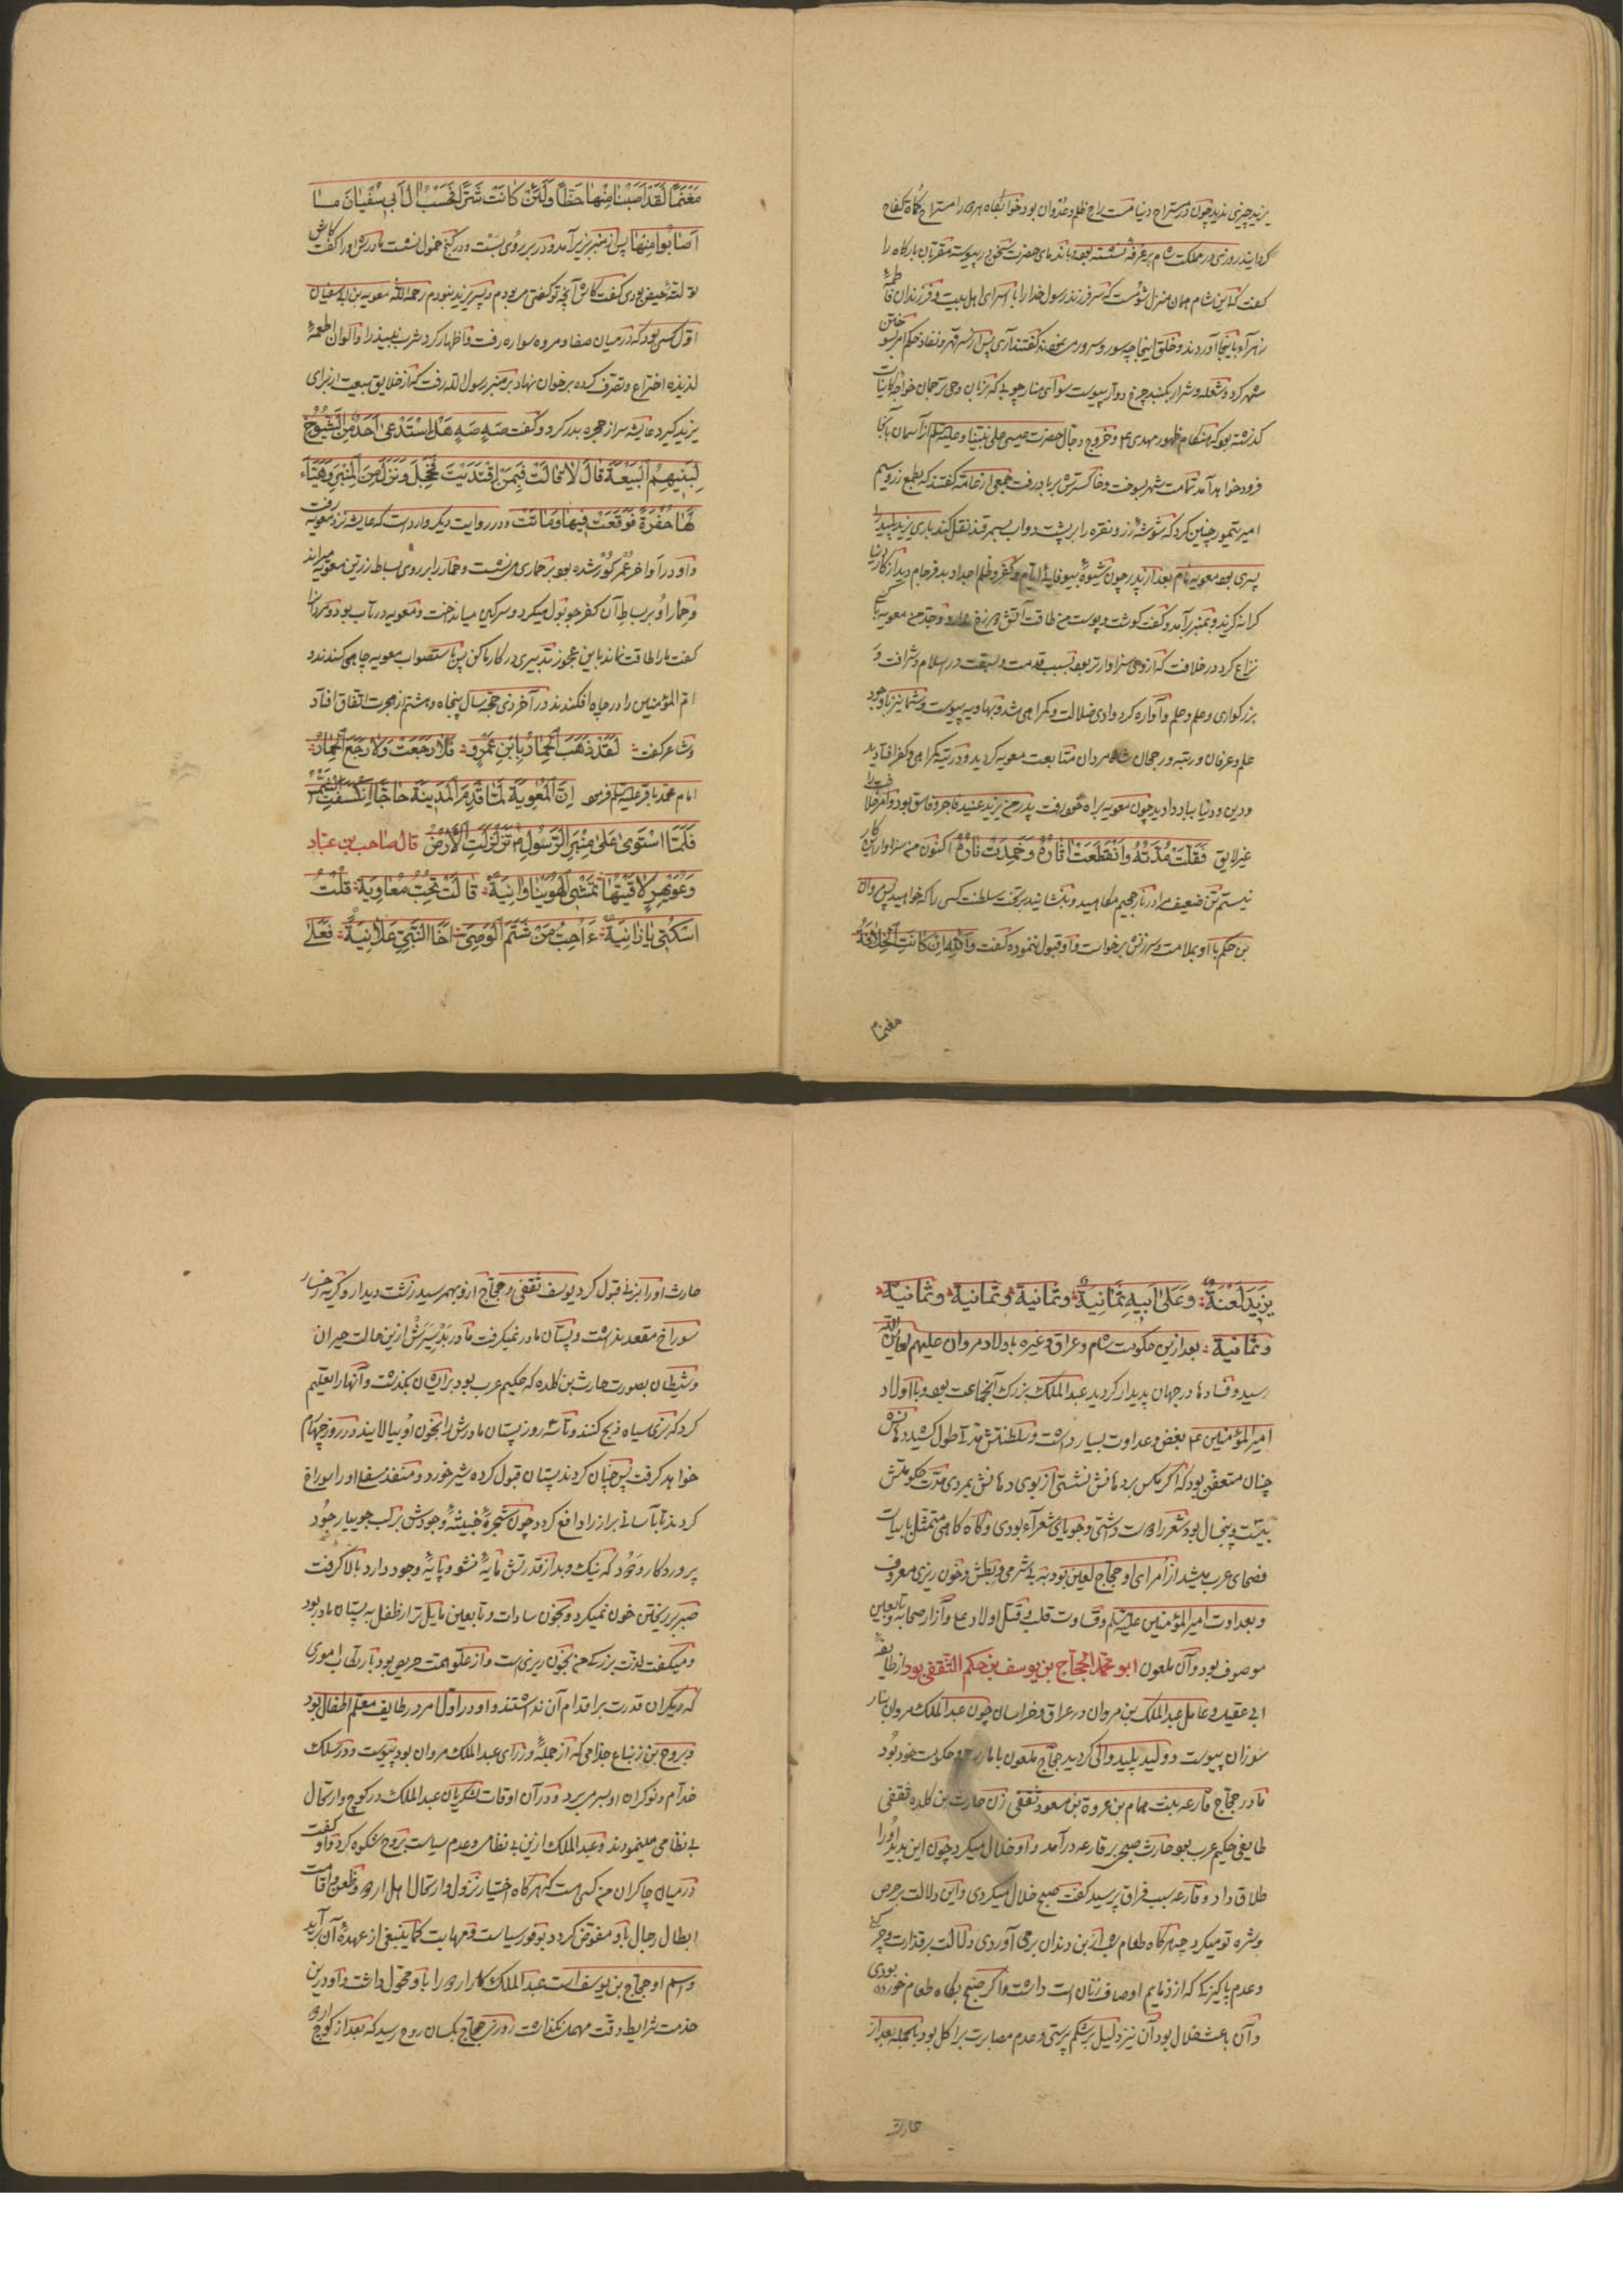 کفت کاین شام همان منزل شومست که سر فرزند رسول خدا را با اسرای اهل بیت و فرزندان فاطمهٔ
زهرآء باینجا آوردند و خلق اینجا چه سور و سرور می نمودند کفتند آری پس از سر قهر و نفاذ حکم امر سوختن
شهر کرد و شعله و شرار بکنبد چرخ دوار پیوست سوای منار چوبی که بزبان وحی ترجمان خواجه کاینات
کذشته بود که هنکام ظهور مهدی ع و خروج دجال حضرت عیسی علی نبینا و علیه السلام از آسمان بآنجا
فرود خواهد آمد تمامت شهر بسوخت و خاکسترش بر باد رفت جمعی از عامه کفتند که بطمع زر و سیم
امیر تیمور چنین کرد که شوشه زر و نقره را بر پشت دواب بسمرقند نقل کند باری یزید پلید را
پسری بود معویه نام بعد از پدر چون شیوهٔ بیوفایی ایام و کفر و ظلم اجداد بدفرجام دید از کار دنیا
کرانه کزید و بمنبر برآمد و کفت کوشت و پوست من طاقت آتش دوزخ ندارد و جد من معویه با کسی
نزاع کرد در خلافت که از وی سزاوارتر بود بسبب قدمت و سبقت در اسلام و شرافت و
بزرکواری و علم و حلم و آواره کرد وادی ضلالت و کمراهی شد و بهاویه پیوست و شما نیز با وجود
علم و عرفان و رتبه و رجحان شاه مردان متابعت معویه کردید و در تیه کمراهی و کفر افتادید
و دین و دنیا بباد دادید چون معویه براه خود رفت پدر من یزید عنید فاجر و فاسق بود و امر خلافت را
غیر لایق فَقَلَّتْ مُدَّتُهُ وَانْقَطَعَتْ آثارُهُ وَخَمِدَتْ نارُهُ اکنون من سزاوار این کار
نیستم تن ضعیف مرا در نار جحیم مکاهید و بنشانید بر تخت سلطنت کسی را که خواهید پس مروان
بن حکم با او بملامت و سرزنش برخواست و او قبول ننموده کفت وَاللهِ اِنْ کانَتِ الْخِلافَةُ
مغنما
مَغْنَمًا لَقَدْ اَصَبْنا مِنْها حَظًّا وَلَئِنْ کانَتْ شَرًّا فَحَسْبُ آلِ اَبی سُفْیانَ ما
اَصابُوا مِنْها پس از منبر بزیر آمد و در بر روی بست و در کنج خمول نشست مادرش او را کفت کاش
تو لتهٔ حیض بودی کفت کاش آنچه تو کفتی می بودم و پسر یزید نبودم رحمه الله معویه بن ابی سفیان
اول کسی بود که در میان صفا و مروه سواره رفت و اظهار کرد شرب نبیذ را و الوان اطعمهٔ
لذیذه اختراع و تصرف کرده بر خوان نهاد بر منبر رسول الله رفت که از خلایق بیعت از برای
یزید کیرد عایشه سر از حجره بدر کرد و کفت صَهٍ صَهٍ هَلِ اسْتَدْعی اَحَدٌ مِنَ الشُّیُوخِ
لِبَنیهِمُ الْبَیْعَةَ قالَ لا قالَتْ فَبِمَنْ اِقْتَدَیْتَ فَخَجِلَ وَنَزَلَ مِنَ الْمِنْبَرِ وَهَیَّأَ
لَها حُفْرَةً فَوَقَعَتْ فیها وَماتَتْ و در روایت دیکر وارد است که عایشه نزد معویه رفت
و او در آواخر عُمر کُور شده بود بر حماری می نشست و حمار را بر روی بساط زرین معویه میراند
و حمار او بر بساط آن کفرجو بول میکرد و سرکین میانداخت و معویه در تاب بود و مروان را
کفت ما را طاقت نماند با این عجوز تدبیری در کار ما کن پس باستصواب معویه چاهی کندند و
ام المؤمنین را در چاه افکندند در آخر ذی حجه سال پنجاه و هشتم از هجرت اتفاق افتاد
و شاعر کفت لَقَدْ ذَهَبَ الْحِمارُ بِاُمِّ عَمْرٍو فَلا رَجَعَتْ وَلا رَجَعَ الْحِمارُ
امام محمد باقر علیه السلام فرمود اِنَّ الْمُعٰوِیَةَ لَمّا قَدِمَ الْمَدینَةَ حاجًّا اِنْکَسَفَتِ الشَّمْسُ
فَلَمَّا اسْتَوی عَلی مِنْبَرِ الرَّسُولِ تَزَلْزَلَتِ الْاَرْضُ قال صاحب بن عباد
اُسْکُتی یا زانِیَةً ءَاُحِبُّ مَنْ شَتَمَ الْوَصِیَّ اَخَا النَّبِیِّ عَلانِیَةً فَعَلی
یَزیدَ لَعْنَةٌ وَعَلی اَبیهِ ثَمانِیَةٌ وثمانیة وثمانیة وثمانیة
وثمانیة بعد ازین حکومت شام و عراق و غیره باولاد مروان علیهم لعاین الله
رسید و فسادها در جهان پدیدار کردید عبد الملک بزرک آنجماعت بود و با اولاد
امیر المؤمنین ع بغض و عداوت بسیار داشت و سلطنتش مدتی طول کشید دهانش
چنان متعفن بود که اکر مکس بر دهانش نشستی از بوی دهانش بمردی مدت حکومتش
بیست و پنجسال بود شعر را دوست داشتی و جویای شعرآء بودی و کاه کاهی متمثل بابیات
فصحای عرب میشد از اُمرای او حجاج لعین بود به بی شرمی و بطش و خون ریزی معروف
و بعداوت امیر المؤمنین علیه السلام و قساوت قلب و قتل اولاد علی و آزار صحابه و تابعین
موصوف بود و آن ملعون ابو محمد الحجاج بن یوسف بن حکم الثقفی بود از طایفهٔ
ابی عقیل و عامل عبد الملک بن مروان در عراق و خراسان چون عبد الملک مروان بنار
سوزان پیوست و ولید پلید والی کردید حجاج ملعون باز بامارت و حکومت خود بود
مادر حجاج فارعه بنت همام بن عروة بن مسعود ثقفی زن حارث بن کلده ثقفی
طایفی حکیم عرب بود حارث صبحی بر فارعه درآمد و او خلال میکرد چون این بدید او را
طلاق داد و فارعه سبب فراق پرسید کفت صبح خلال میکردی و این دلالت بر حرص
و شره تو میکرد چه هرکاه طعام شب از بن دندان برمی آوردی دلالت بر قذارت و چرکنی
و عدم پاکیزکی که از ذمایم اوصاف زنان است داشت و اکر صبح بکاه طعام خورده بودی
و آن باعث خلال بود آن نیز دلیل بر شکم پرستی و عدم مصابرت بر اکل بود بالجمله بعد از
حارث
حارث او را بزنی قبول کرد یوسف ثقفی و حجاج ازو بهمرسید زشت دیدار و کریه رخسار
سوراخ مقعد نداشت و پستان مادر نمیکرفت مادر بد سِیَرش ازین حالت حیران
و شیطان بصورت حارث بن کلده که حکیم عرب بود بر ایشان بکذشت و آنها را تعلیم
کرد که بزی سیاه ذبح کنند و تا سه روز پستان مادرش را بخون او بیالایند در روز چهارم
خواهد کرفت پس چنان کردند پستان قبول کرده شیر خورد و منفذ سفلای او را سوراخ
کردند تا بآسانی براز را دافع کرد و چون شجرهٔ خبیثهٔ وجودش بر لب جویبار جود
پروردکار ودود که نیک و بد از قدرتش مایهٔ نشو و پایهٔ وجود دارد بالا کرفت
صبر بر ریختن خون نمیکرد و بخون سادات و تابعین مایل تر از طفل به پستان مادر بود
و میکفت لذت بزرک من بخون ریزی است و از علو همت حریص بود بارتکاب اموری
که دیکران قدرت بر اقدام آن نداشتند و او در اول امر در طایف معلم اطفال بود
و بروح بن زنباع جذامی که از جملهٔ وزرای عبد الملک مروان بود پیوست و در سلک
خدام و نوکران او بسر می برد و در آن اوقات لشکریان عبد الملک در کوچ و ارتحال
بی نظامی مینمودند و عبد الملک ازین بی نظامی و عدم سیاست بروح شکوه کرد و او کفت
در میان چاکران من کسی هست که هرکاه اختیار نزول و ارتحال اهل اردو و ظعن و اقامت
ابطال رجال باو مفوض کردد بوفور سیاست و مهابت کما ینبغی از عهدهٔ آن برآید
و اسم او حجاج بن یوسف است عبد الملک کار اردو را باو محول داشت و او درین
خدمت شرایط دقت مهمل نکذاشت روزی حجاج بکسان روح رسید که بعد از کوچ اردو